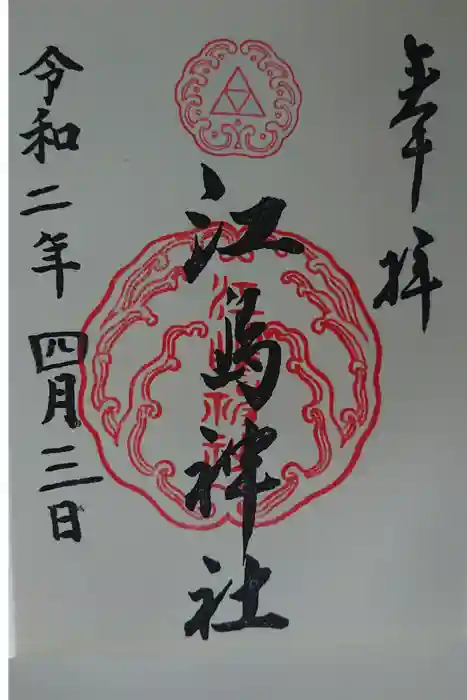 奉拝
江島神社
江島神社
令和二年四月三日